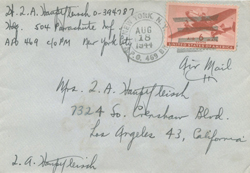 Lt. Z. A. Hauptfleisch O-394787
Hq. 504 Parachute Inf
APO 469 c/o PM New York City
NEW YORK, N.Y.
AUG
18
1944
UNITED STATES OF AMERICA
Air Mail
Mrs. Z. A. Hauptfleisch
7324 So. Crenshaw Blvd.
Los Angeles 43, California
Z. A. Hauptfleisch